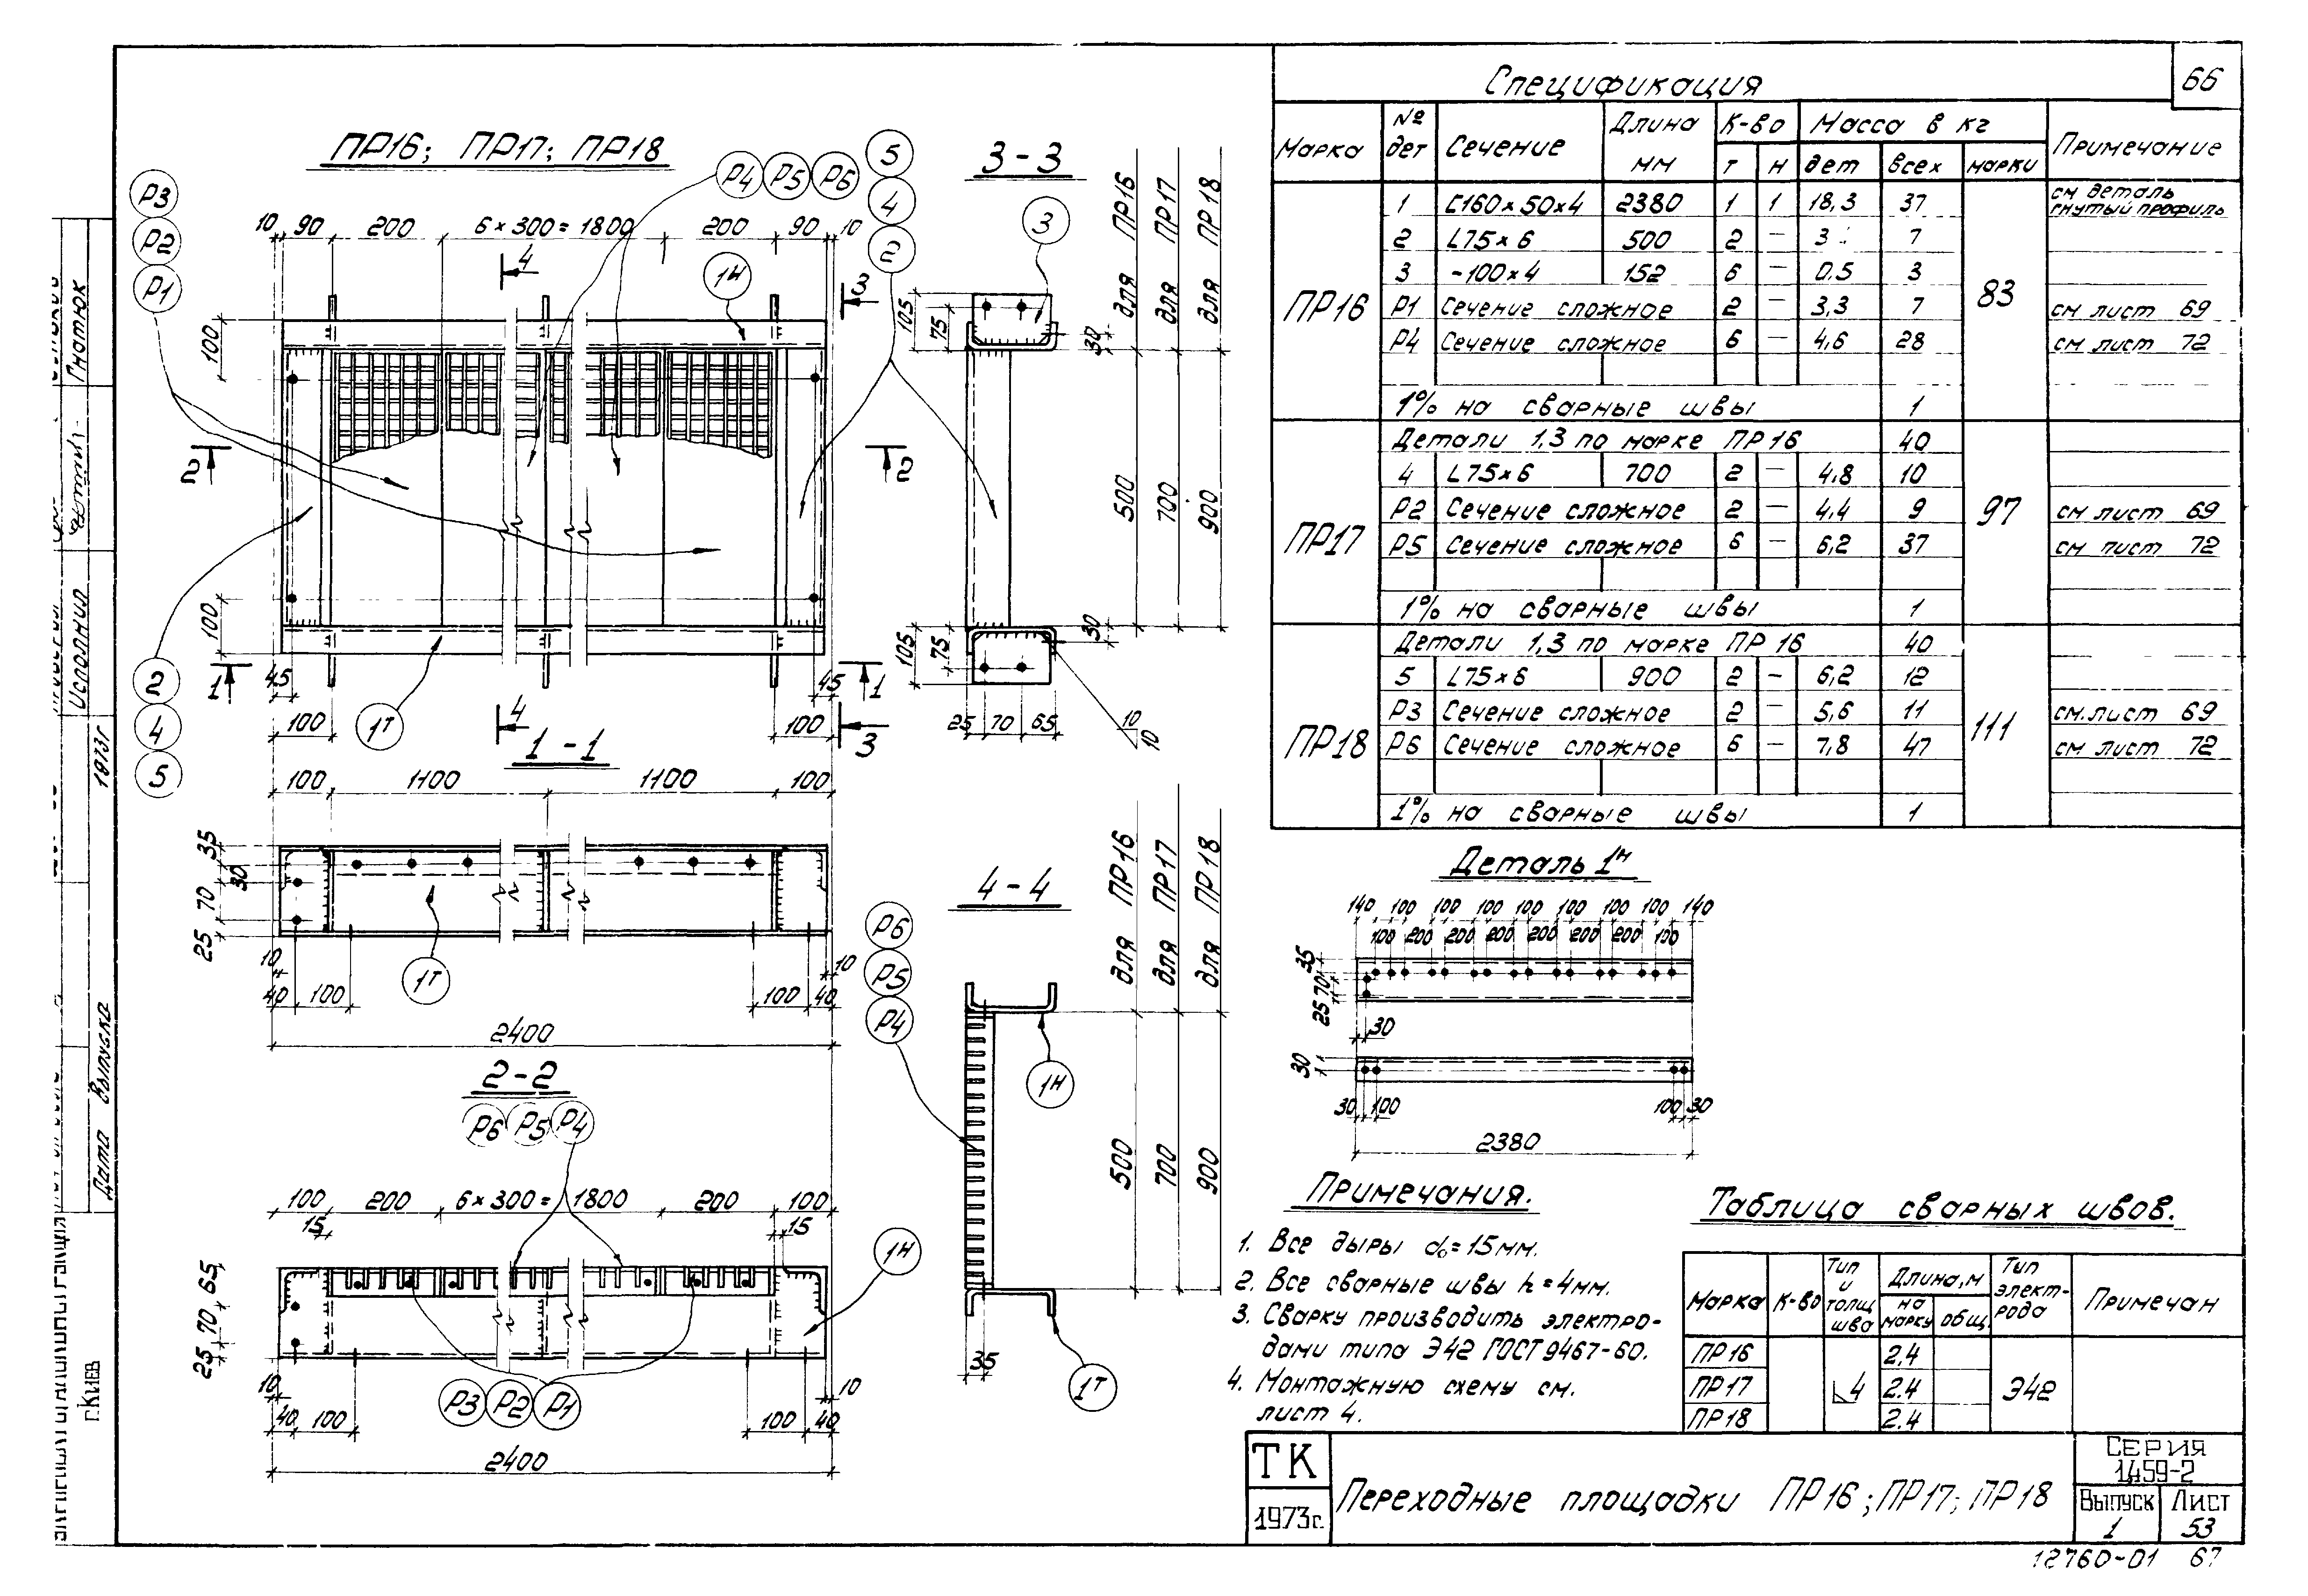 66
Спецификация
Марка № дет Сечение Длина мм К-во Масса в кг Примечание
т н дет всех марки
ПР16 83
1 [160×50×4 2380 1 1 18,3 37 см деталь гнутый профиль
2 L75×6 500 2 — 3 7
3 -100×4 152 6 — 0.5 3
Р1 Сечение сложное 2 — 3,3 7 см лист 69
Р4 Сечение сложное 6 — 4,6 28 см лист 72
1% на сварные швы 1
ПР17 97
Детали 1,3 по марке ПР16 40
4 L75×6 700 2 — 4,8 10
Р2 Сечение сложное 2 — 4,4 9 см лист 69
Р5 Сечение сложное 6 — 6,2 37 см лист 72
1% на сварные швы 1
ПР18 111
Детали 1,3 по марке ПР16 40
5 L75×6 900 2 — 6,2 12
Р3 Сечение сложное 2 — 5,6 11 см.лист 69
Р6 Сечение сложное 6 — 7,8 47 см лист 72
1% на сварные швы 1
ПР16; ПР17; ПР18
Р3 Р2 Р1
Р4 Р5 Р6
5 4 2
10 90 200 6×300=1800 200 90 10
4
1Н
3
100
2 2
100
1 1
45 45
2 4 5
100 1Т 4 100 3
3-3
3
для ПР16
для ПР17
для ПР18
105 75 30
500 700 900
105 75 30
25 70 65
10
10
1-1
100 1100 1100 100
35 30 70 25
1Т
10 10
40 100 100 40
2400
2-2
Р6 Р5 Р4
100 200 6×300=1800 200 100
15 15
1Н
65 70 25
10 10
Р3 Р2 Р1
40 100 100 40
2400
4-4
для ПР16
для ПР17
для ПР18
Р6
Р5
Р4
1Н
500 700 900
35
1Т
Деталь 1Н
140 100 100 100 100 100 100 100 140
100 200 200 200 200 200 200 100
35 70 25
30
30
30 100 100 30
2380
Примечания.
1. Все дыры d₀=15мм.
2. Все сварные швы h=4мм.
3. Сварку производить электро-
дами типа Э42 ГОСТ 9467-60.
4. Монтажную схему см.
лист 4.
Таблица сварных швов.
Марка К-во Тип и толщ шва Длина, м Тип электрода Примечан
на марку общ.
ПР16 2,4
ПР17 4 2.4 Э42
ПР18 2.4
ТК
1973г.
Переходные площадки ПР16; ПР17; ПР18
Серия
1.459-2
Выпуск Лист
1 53
12760-01 67
Гнатюк
Исполнил
1973г
Дата Выпуска
г.Киев